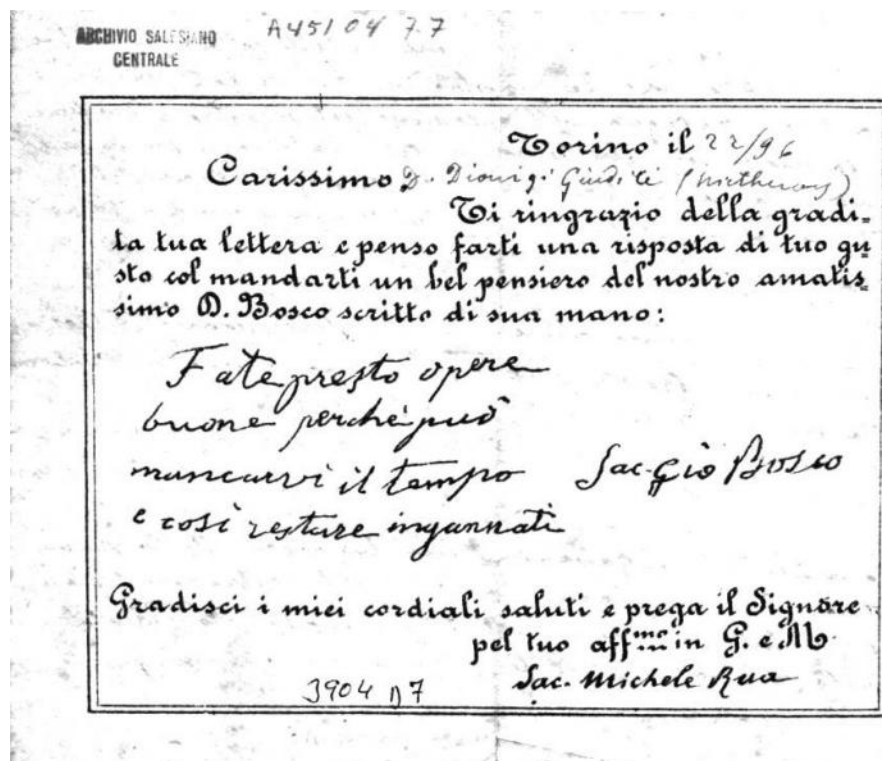 A4510477
ARCHIVIO SALESIANO
CENTRALE
Torino il 22/96
Carissimo D. Dionigi Giudici
Ti ringrazio della gradi=
ta tua lettera e penso farti una risposta di tuo gu=
sto col mandarti un bel pensiero del nostro amatis=
simo D. Bosco scritto di sua mano:
Fate presto opere
buone perchè può
mancarvi il tempo
e così restare ingannati
Sac. Gio Bosco
Gradisci i miei cordiali saluti e prega il Signore
pel tuo aff.mo in G. e M.
Sac. Michele Rua
3904 D7